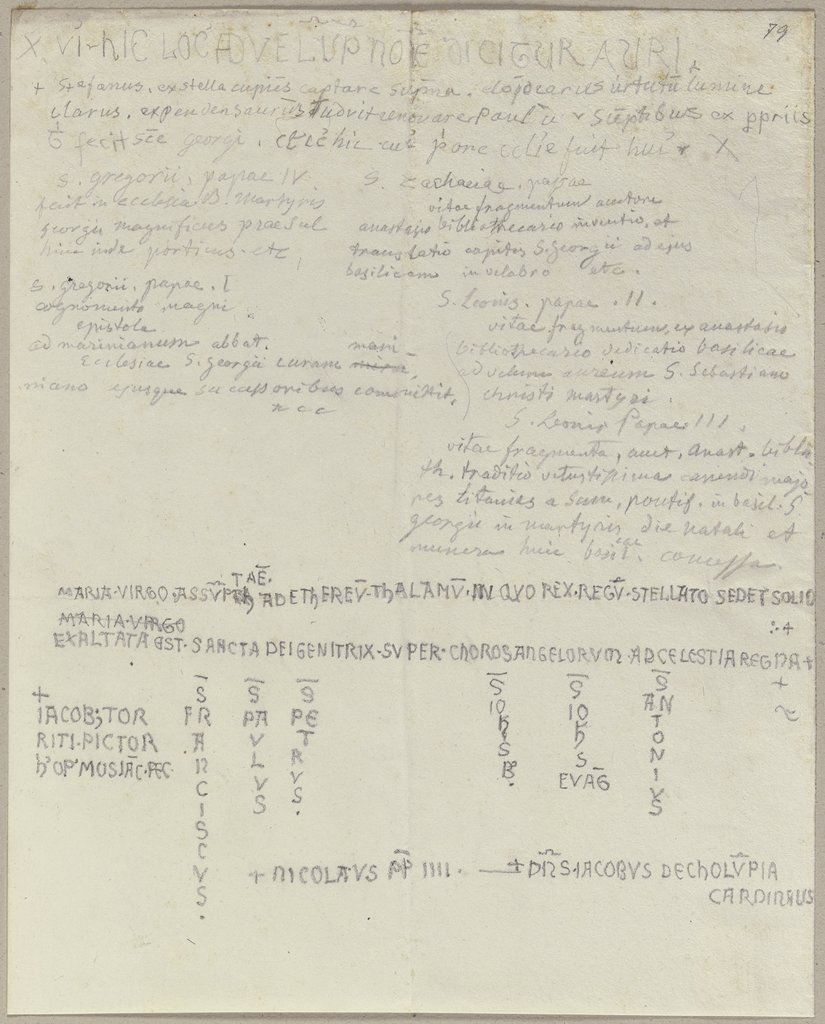 79
X VI-HIC LOC AD VELUP NOĒ DICITUR AURI
+ Stefanus. ex stella cupiēs captare suprna. eloquears virtutū lumine
clarus. expendens auruš studuit renovare Paulū v Stēptibus ex ppriis
fecit scē georgi. hic fuit hui X
S. gregorii, papae IV
fecit in ecclesia B. Martyris
georgii magnificus praesul
hinc inde porticus. etc,
S. gregorii. papae. I
cognomento magni
epistola
ad marinianum abbat.
Ecclesiae S. georgii curam mari-
niano ejusque successoribus committit,
S. Zachariae, papae
vitae fragmentum auctore
anastasio bibliothecario inventio, et
translatio capitis S. Georgii ad ejus
basilicam in velabro etc.
S. Leonis. papae. II.
vitae fragmentum, ex anastasio
bibliothecario dedicatio basilicae
ad velum aureum S. Sebastiano
christi martyri.
S. Leonis Papae. III,
vitae fragmenta, auct. anast. biblio
th. traditio vetustissima canendi majo
res litanies a Sum. pontif. in basil. S
georgii in martyris die natali et
munera huic basilicae concessa.
TAĒ.
MARIA·VIRGO·ASSŪPTA AD ETHEREŪ·THALAMŪ·IN QVO REX·REGŪ·STELLATO SEDET SOLIO
MARIA·VIRGO :·+
EXALTATA EST·SANCTA DEI GENITRIX·SVPER·CHOROS ANGELORVM·AD CELESTIA REGNA+
+
IACOB;TOR
RITI·PICTOR
H' OP' MOSIĀC·FEC·
S̄ FRANCISCVS.
S̄ PAVLVS
S̄ PETRVS.
S̄ IOHIS B̄.
S̄ IOHS EVĀG
S̄ ANTONIVS
+ NICOLAVS P̄P IIII. —+DN̄S·IACOBVS DECHOLŪPIA
CARDINALIS